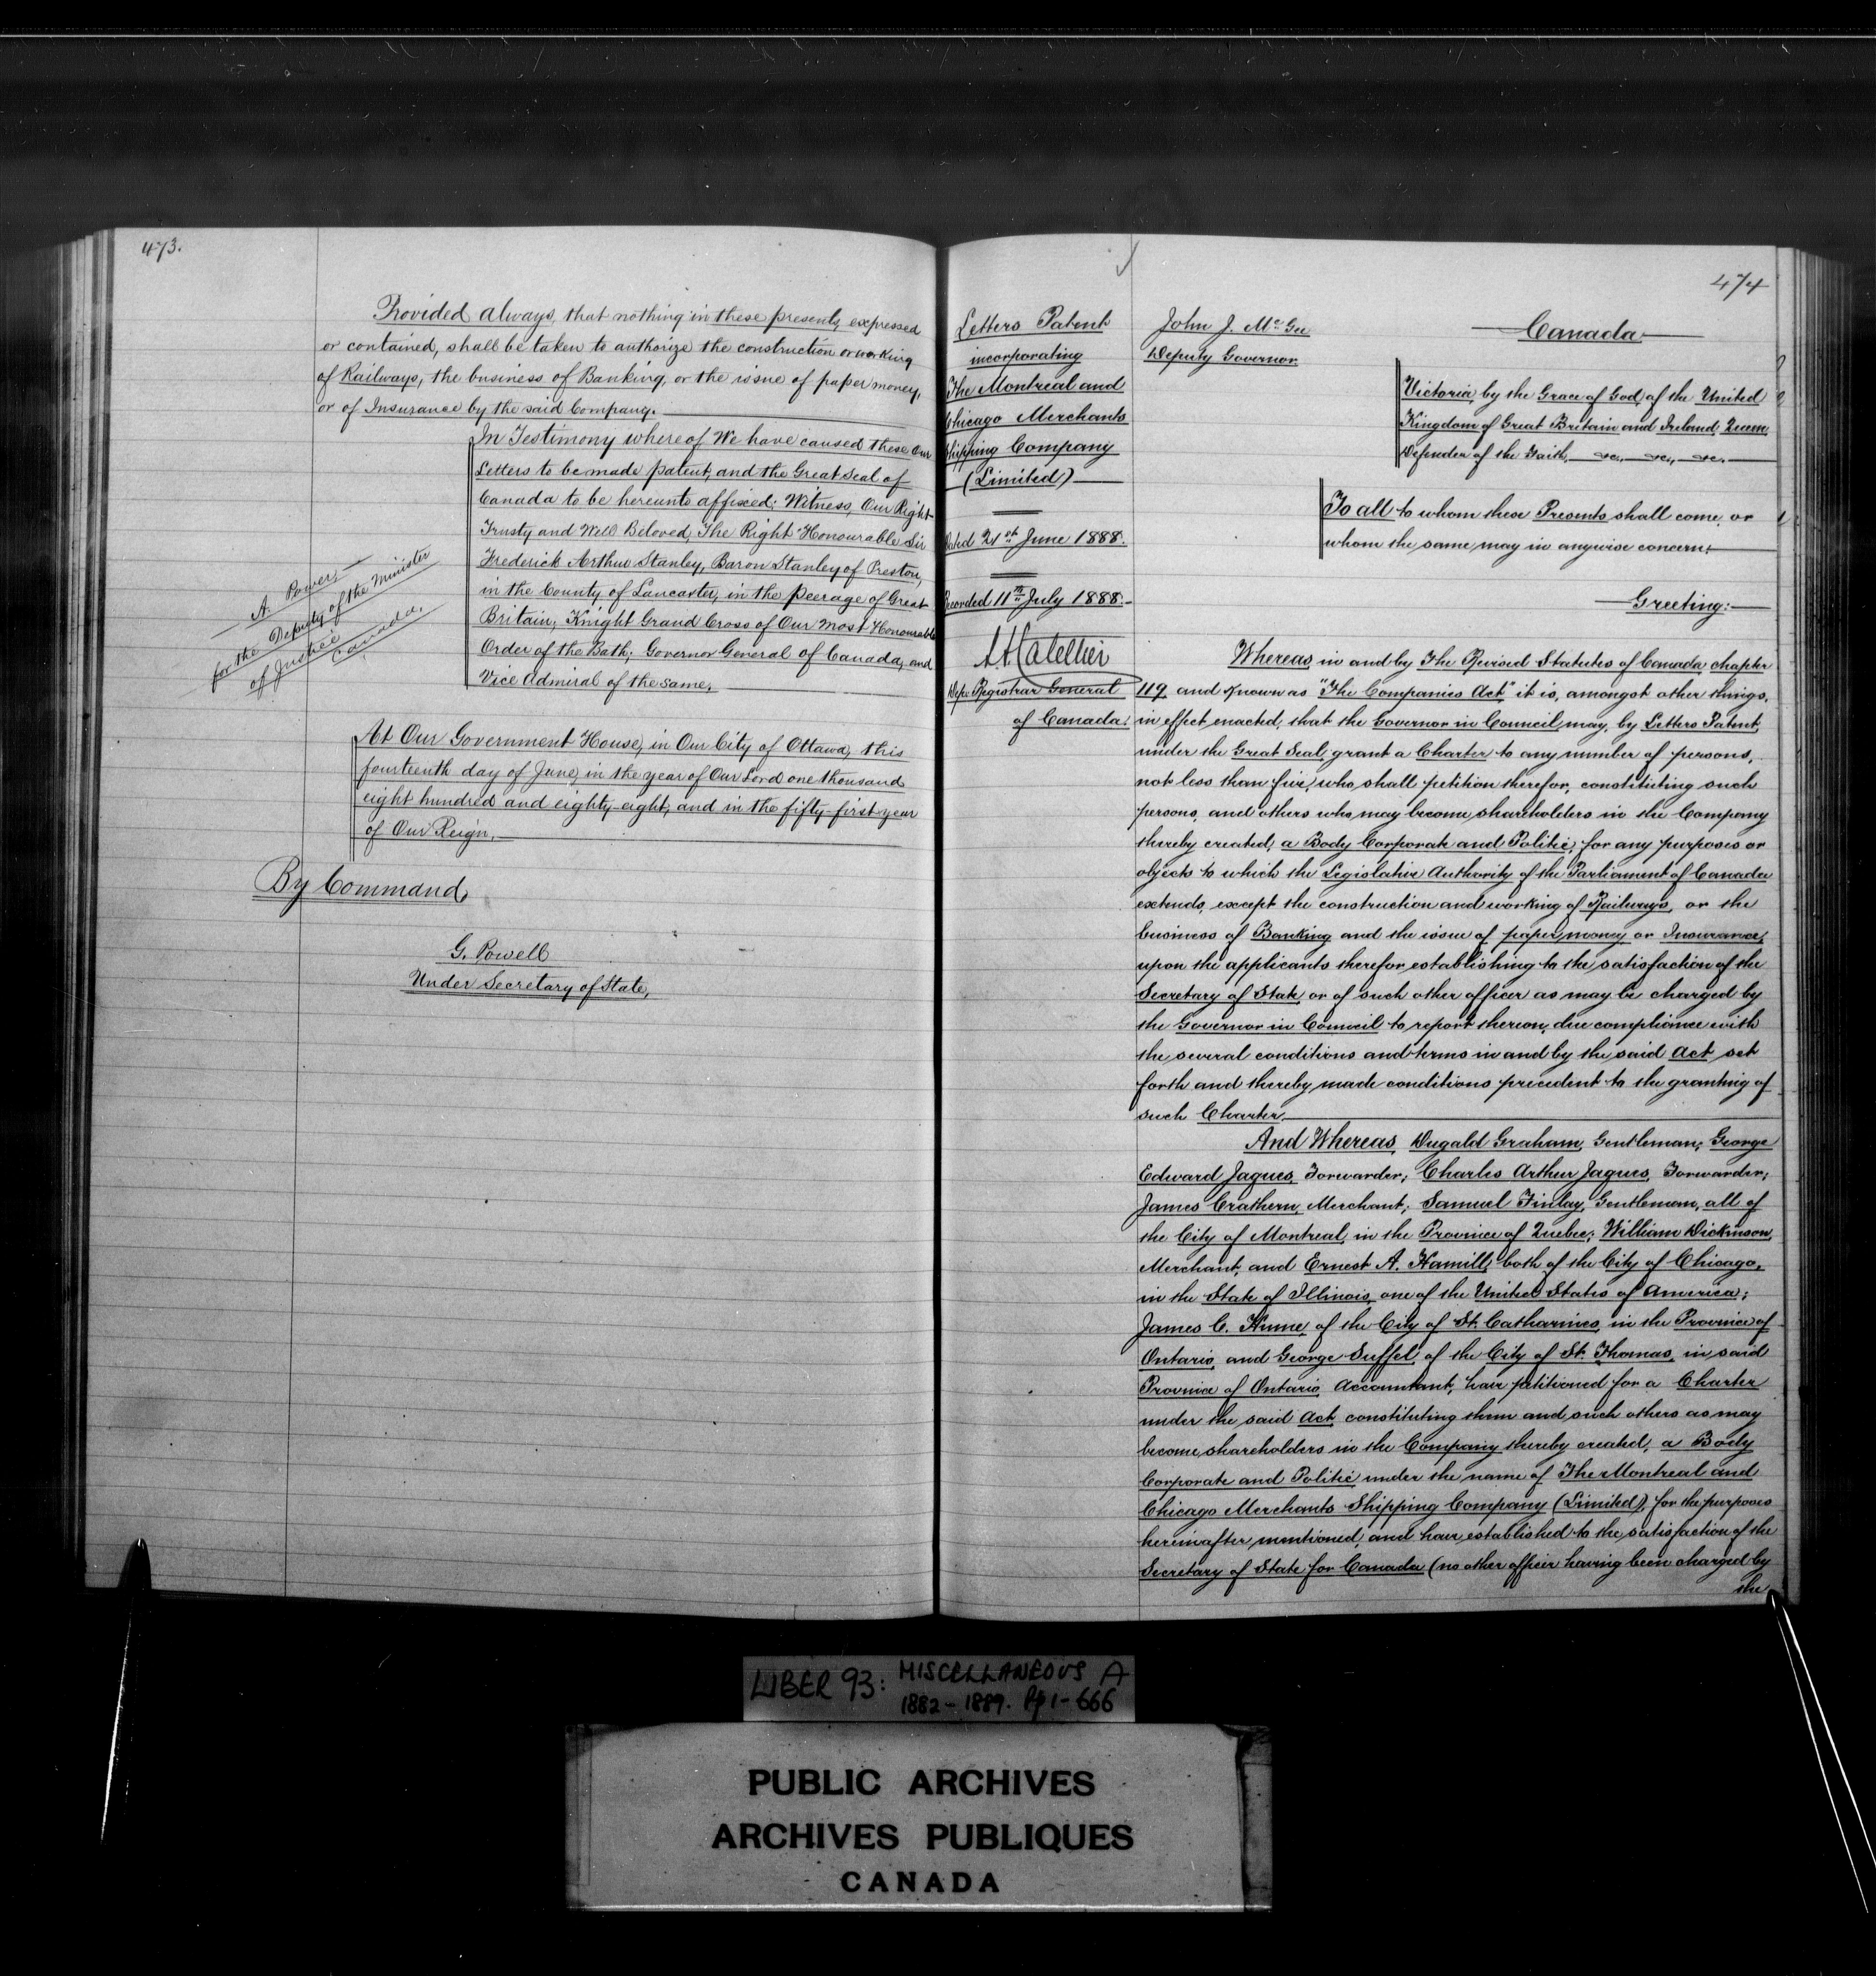 473.
Provided always, that nothing in these presents, expressed
or contained, shall be taken to authorize the construction or working
of Railways, the business of Banking, or the issue of paper money,
or of Insurance by the said Company.
In Testimony whereof We have caused these Our
Letters to be made patent, and the Great Seal of
Canada to be hereunto affixed; Witness, Our Right
Trusty and Well Beloved, The Right Honourable Sir
Frederick Arthur Stanley, Baron Stanley of Preston,
in the County of Lancaster, in the Peerage of Great
Britain; Knight Grand Cross of Our Most Honourable
Order of the Bath; Governor General of Canada, and
Vice Admiral of the same.
A. Power,
for the Deputy of the Minister
of Justice
Canada.
At Our Government House, in Our City of Ottawa, this
fourteenth day of June, in the year of Our Lord one thousand
eight hundred and eighty-eight, and in the fifty-first year
of Our Reign.
By Command,
G. Powell
Under Secretary of State,
474
Letters Patent
incorporating
The Montreal and
Chicago Merchants
Shipping Company
(Limited)
Dated 21st June 1888.
Recorded 11th July 1888.
Dep. Registrar General
of Canada.
John J. McGee
Deputy Governor
Canada
Victoria, by the Grace of God, of the United
Kingdom of Great Britain and Ireland, Queen,
Defender of the Faith, &c., &c., &c.
To all to whom these Presents shall come, or
whom the same may in anywise concern;
Greeting:
Whereas, in and by The Revised Statutes of Canada, chapter
119, and known as "The Companies Act" it is, amongst other things,
in effect enacted, that the Governor in Council may, by Letters Patent,
under the Great Seal, grant a Charter to any number of persons,
not less than five, who shall petition therefor, constituting such
persons, and others who may become shareholders in the Company
thereby created, a Body Corporate and Politic, for any purposes or
objects to which the Legislative Authority of the Parliament of Canada
extends, except the construction and working of Railways, or the
business of Banking and the issue of paper money, or Insurance,
upon the applicants therefor establishing to the satisfaction of the
Secretary of State, or of such other officer as may be charged by
the Governor in Council to report thereon, due compliance with
the several conditions and terms in and by the said Act set
forth and thereby made conditions precedent to the granting of
such Charter.
And Whereas, Dugald Graham, Gentleman; George
Edward Jaques, Forwarder; Charles Arthur Jaques, Forwarder;
James Crathern, Merchant; Samuel Finlay, Gentleman, all of
the City of Montreal, in the Province of Quebec; William Dickinson,
Merchant, and Ernest A. Hamill, both of the City of Chicago,
in the State of Illinois, one of the United States of America;
James C. Hume, of the City of St. Catharines, in the Province of
Ontario, and George Suffel, of the City of St. Thomas, in said
Province of Ontario, Accountant, have petitioned for a Charter
under the said Act, constituting them and such others as may
become shareholders in the Company thereby created, a Body
Corporate and Politic under the name of The Montreal and
Chicago Merchants Shipping Company (Limited), for the purposes
hereinafter mentioned, and have established to the satisfaction of the
Secretary of State for Canada (no other officer having been charged by
the
LIBER 93: MISCELLANEOUS A
1882-1889. Pp 1-666
PUBLIC ARCHIVES
ARCHIVES PUBLIQUES
CANADA